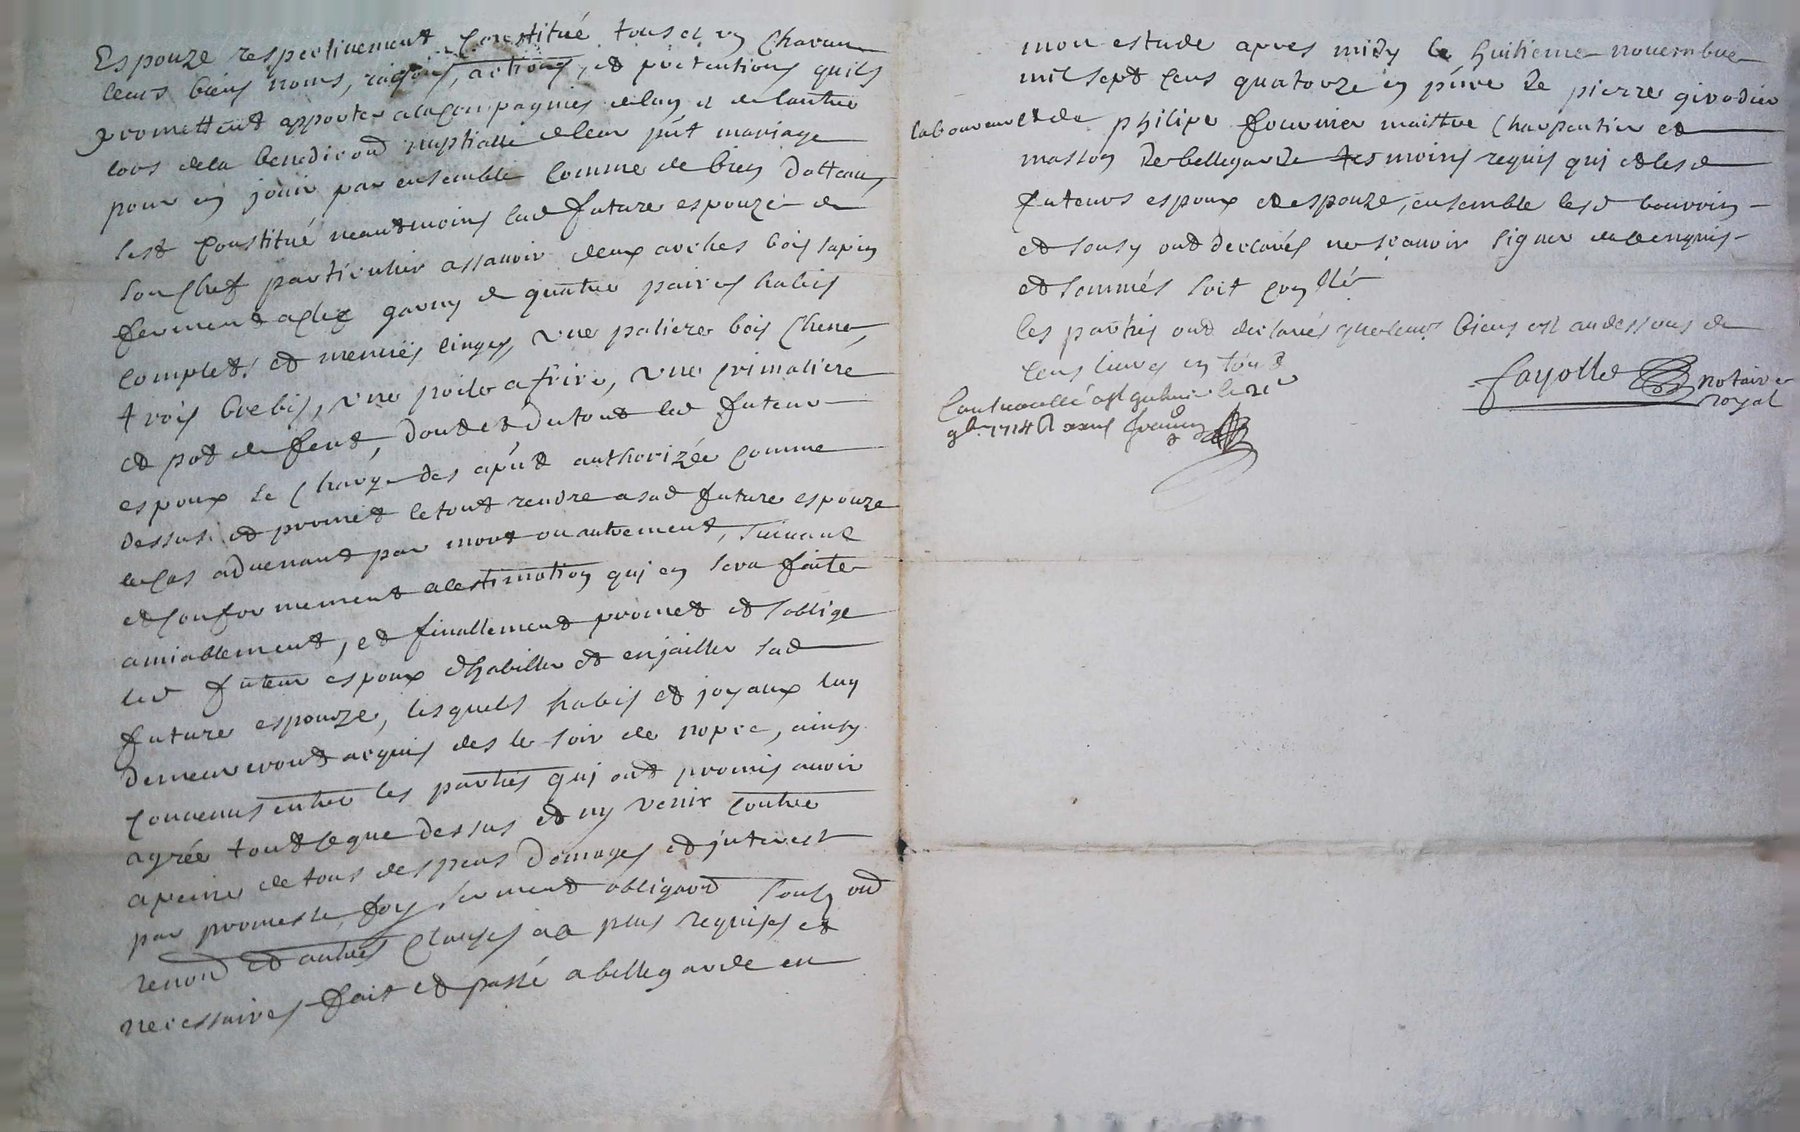 Espouze respectivement constitué tous et un chacun
leurs biens noms, raisons, actions, et prétentions quils
promettent apporter a la compagnies de luy et de lautre
lors de la benediōn nuptialle de leur pñt mariage
pour en jouir par ensemble comme de bien dottaux
sest constitué neantmoins lad future espouze de
son chef particulier assavoir deux arches bois sapin
ferment a clez garny de quatre paires habis
complets et menuës linges, une paliere bois chene,
trois brebis, une poile a frire, une crimaliere
et pot de fert, dont et du tout led futeur
espoux se charge des apñt authorizée comme
dessus et promet le tout rendre a sad future espouze
le cas advenant par mort ou autrement, suivant
et conformement a lestimation qui en sera faite
amiablement, et finallement promet et soblige
led futeur espoux dhabiller et enjailler sad
future espouze, lesquels habis et joyaux luy
demeureront acquis des le soir de nopce, ainsy
convenus entre les parties qui ont promis avoir
agrée tout ce que dessus et ny venir contre
a peine de tous despens domages et interest
par promesse, foy, serment obligaōn soubz onō
renonō et autres clauses a ce plus requises et
necessaires fait et passé a bellegarde en
mon estude apres midy le huitieme novembre
mil sept cens quatorze en pñce de pierre girodier
laboureur et de philipe fournier maittre charpentier et
masson de bellegarde tesmoins requis qui et lesd
futeurs espoux et espouze, ensemble lesd bouvoin
et sousy ont declarés ne scavoir signer de ce enquis
et sommés soit conllé
les parties ont declarés que leurs biens est au dessous de
cens livres en tout
Fayolle notaire
royal
Controollé a st galmier le 20
9b. 1714 R